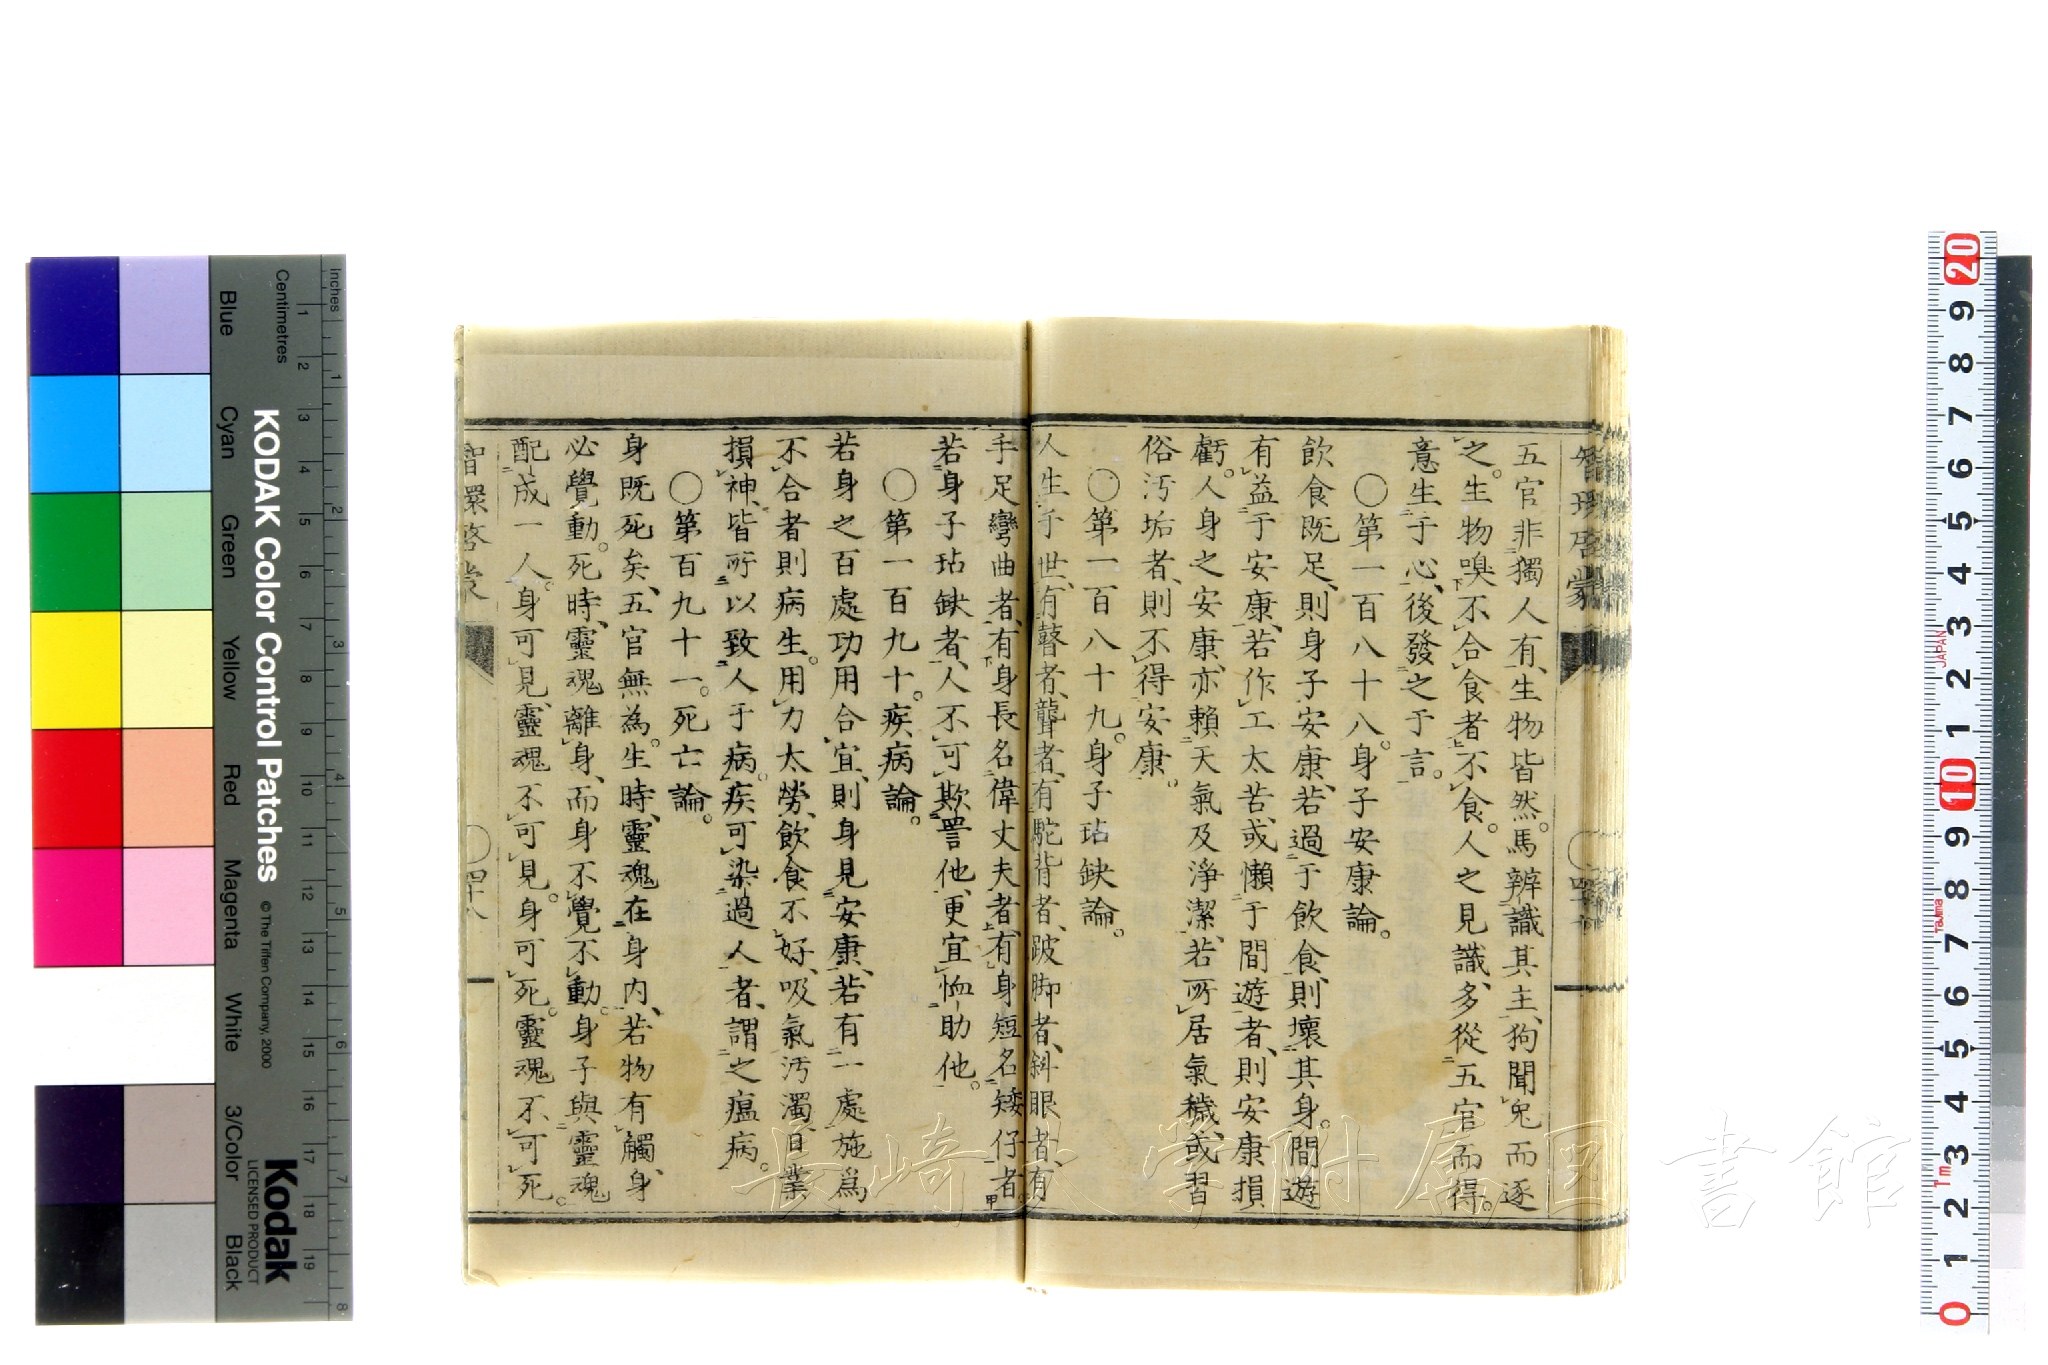 五官非獨人有、生物皆然。馬辨識其主、狗聞兔而逐
之。生物嗅不合食者不食。人之見識、多從五官而得。
意生于心、後發之于言。
〇第一百八十八。身子安康論。
飲食既足、則身子安康、若過于飲食、則壞其身。間遊
有益于安康、若作工太苦、或懶于間遊者、則安康損
虧。人身之安康、亦賴天氣及淨潔、若所居氣穢、或習
俗汚垢者、則不得安康。
〇第一百八十九。身子玷缺論。
人生于世、有瞽者、聾者、有駝背者、跛脚者、斜眼者、有
手足彎曲者、有身長名偉丈夫者、有身短名矮仔者
若身子玷缺者、人不可欺詈他、更宜恤助他。
〇第一百九十。疾病論。
若身之百處功用合宜、則身見安康、若有一處施爲
不合者則病生。用力太勞、飲食不好、吸氣汚濁、日業
損神、皆所以致人于病。疾可染過人者、謂之瘟病。
〇第百九十一。死亡論。
身既死矣、五官無為。生時、靈魂在身内、若物有觸身、
必覺動。死時、靈魂離身、而身不覺不動。身子與靈魂
配成一人。身可見、靈魂不可見。身可死。靈魂不可死。
智環啓蒙
〇四十八
長崎大学附属図書館
KODAK Color Control Patches
© The Tiffen Company, 2000
Kodak
LICENSED PRODUCT
Inches 1 2 3 4 5 6 7 8
Centimetres 1 2 3 4 5 6 7 8 9 10 11 12 13 14 15 16 17 18 19
Blue
Cyan
Green
Yellow
Red
Magenta
White
3/Color
Black
20 9 8 7 6 5 4 3 2 1 10 9 8 7 6 5 4 3 2 1 0
JAPAN
Tajima